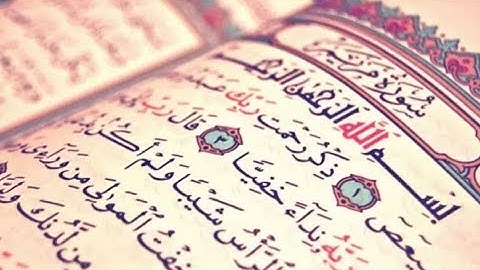 سُورَةُ مَرْيَمَ
بِسْمِ اللَّهِ الرَّحْمَٰنِ الرَّحِيمِ
ـعص ١ ذِكْرُ رَحْمَتِ رَبِّكَ
رَبَّهُ نِدَآءً خَفِيًّا ٣ قَالَ رَبِّ
الرَّأْسُ شَيْبًا وَلَمْ أَكُنْ
خِفْتُ الْمَوَالِيَ مِن وَرَآءِى
مِن لَّدُنكَ